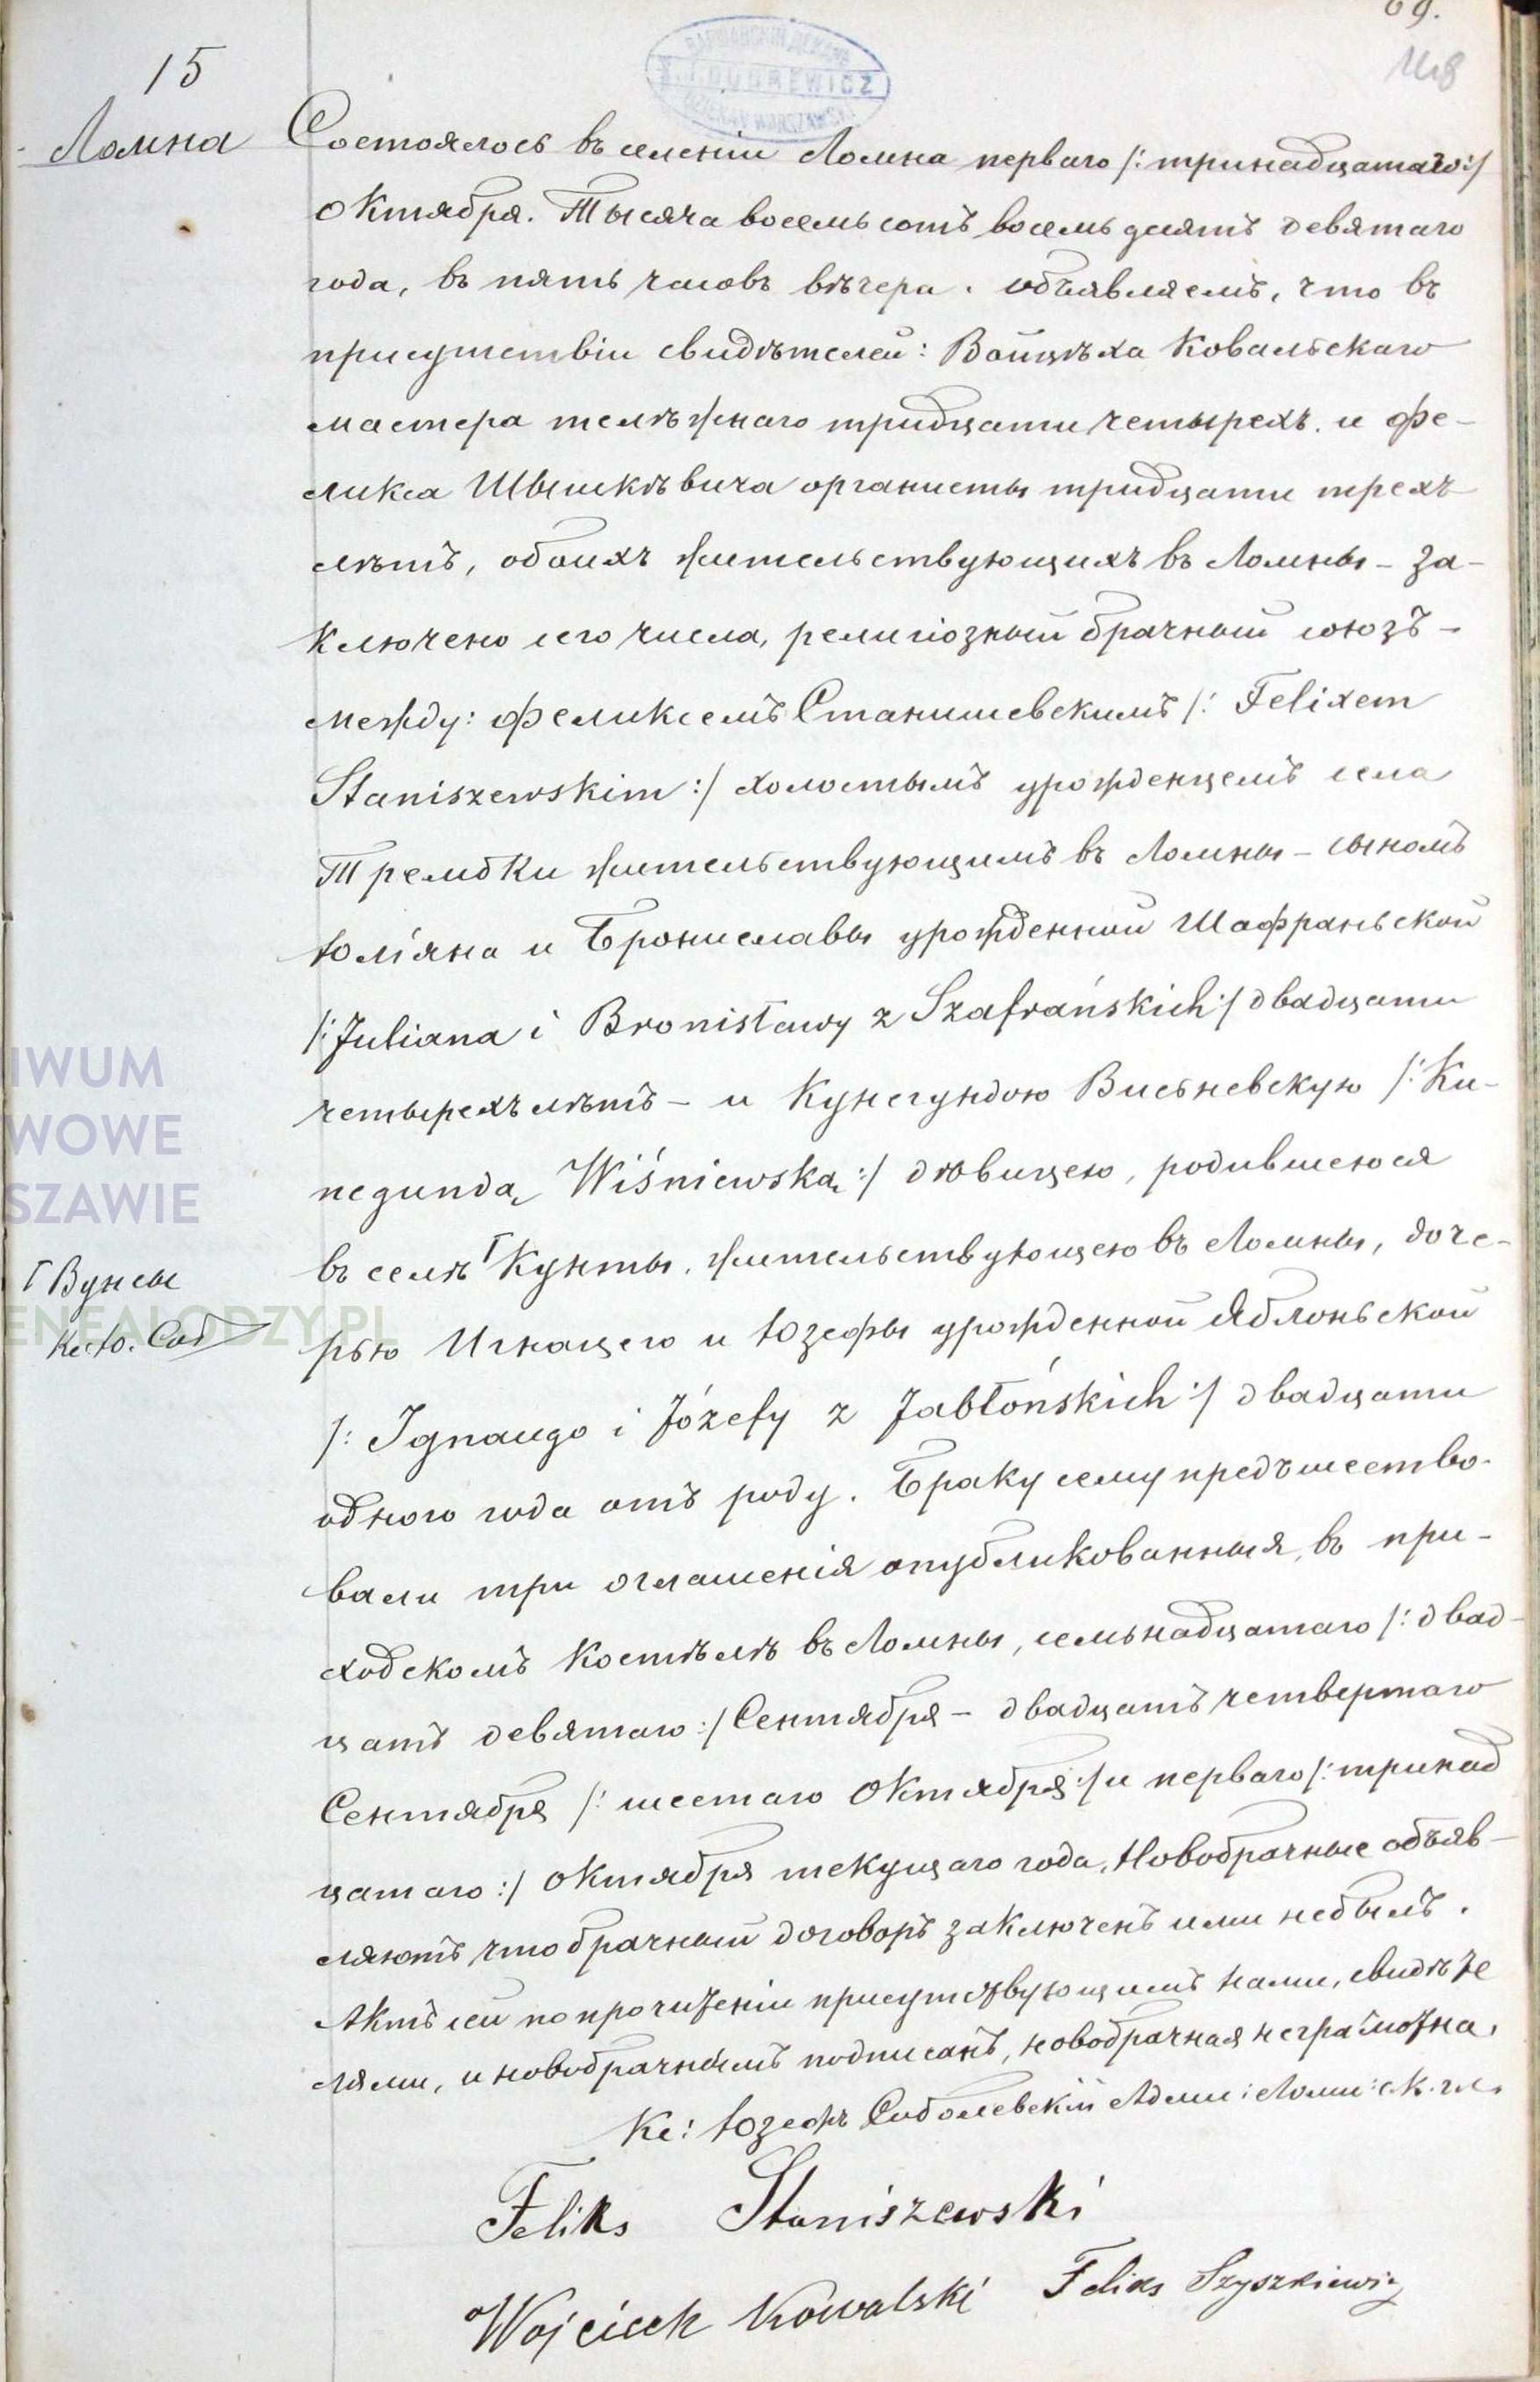 69.
148
15
Ломна
ВАРШАВСКІЙ ДЕКАНЪ
DZIEKAN WARSZAWSKI
Состоялось въ селеніи Ломна перваго /: тринадцатаго :/
Октября. Тысяча восемь сотъ восемь десятъ девятаго
года, въ пять часовъ вѣчера. объявляемъ, что въ
присутствіи свидѣтелей: Войцѣха Ковальскаго
мастера телѣжнаго тридцати четырехъ. и Фе-
ликса Шышкѣвича органисты тридцати трехъ
лѣтъ, обоихъ жительствующихъ въ Ломны - за-
ключено сего числа, религіозный брачный союзъ -
между: Феликсемъ Станишевскимъ /: Felixem
Staniszewskim :/ холостымъ урожденцемъ села
Трембки жительствующимъ въ Ломны - сыномъ
Юліяна и Брониславы урожденной Шафраньской
/: Juliana i Bronisławy z Szafrańskich :/ двадцати
четырехъ лѣтъ - и Кунегундою Висьневскую /: Ku-
negundą Wiśniewską :/ дѣвицею, родившеюся
въ селѣ Г Кунты, жительствующею въ Ломны, доче-
рью Игнацего и Юзефы урожденной Яблоньской
/: Ignacego i Józefy z Jabłońskich :/ двадцати
одного года отъ роду. Браку сему предъшество-
вали три оглашенія опубликованныя, въ при-
ходскомъ костѣлѣ въ Ломны, семьнадцатаго /: двад-
цатъ девятаго :/ Сентября - двадцатъ четвертаго
Сентября /: шестаго Октября :/ и перваго /: тринад
цатаго :/ Октября текущаго года, Новобрачные объяв-
ляютъ что брачный договоръ заключенъ ими небылъ.
Актъ сей по прочитеніи присутствующимъ нами, свидѣте
лями, и новобрачнымъ подписанъ, новобрачная неграмотна.
Кс: Юзефъ Соболевскій Адми: Ломн:
Feliks Staniszewski
Wojciech Kowalski Feliks Szyszkiewicz
Г Вунсы
Кс. Ю. Соб
IWUM
WOWE
SZAWIE
ENEALODZY.PL